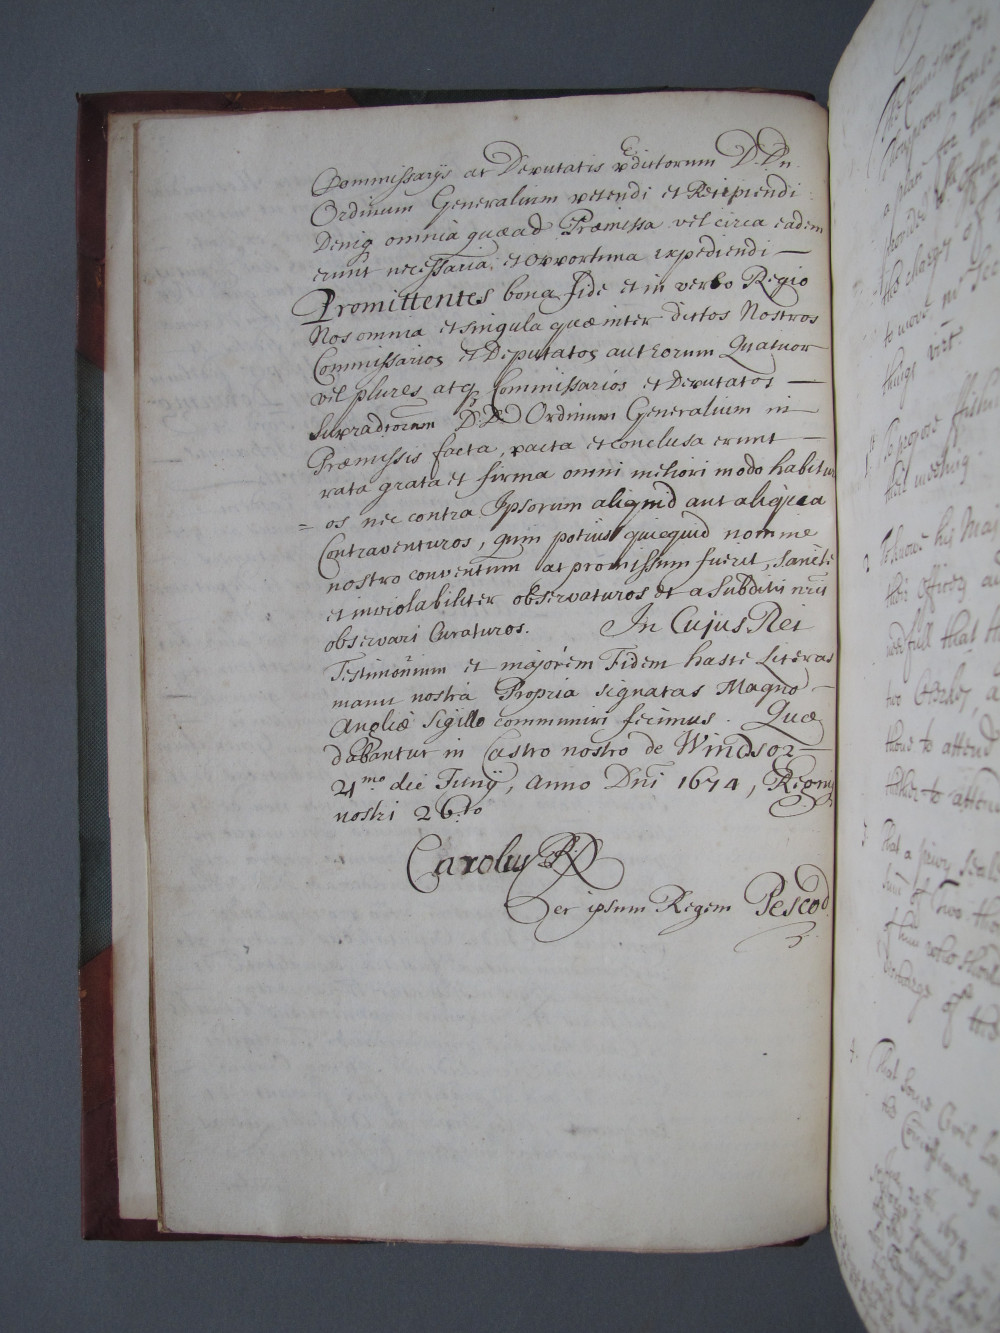 Commissarijs ac Deputatis pdictorum D. Dn.
Ordinum Generalium petendi et Recipiendi
Deniq omnia quæ ad Præmissa vel circa eadem
erunt necessaria, et opportuna expediendi —
Promittentes bona fide et in verbo Regio
Nos omnia et singula quæ inter dictos Nostros
Commissarios et Deputatos aut eorum Quatuor
vel plures atq Commissarios et Deputatos —
Supradtorum D. D. Ordinum Generalium in
Præmissis facta, pacta et conclusa erunt —
rata grata et firma omni meliori modo habitur
= os nec contra Ipsorum aliquid aut aliqua
Contraventuros, quin potius quicquid nomine
nostro conventum ac promissum fuerit, sancte
et inviolabiliter observaturos et a subditis nris
observari Curaturos. In Cujus Rei
Testimonium et majorem Fidem hasce Literas
manu nostra Propria signatas Magno —
Angliæ Sigillo communiri fecimus. Quæ
dabantur in Castro nostro de Windsor —
21mo die Junij, Anno Dni 1674, Regni
nostri 26.to
Carolus R
Per ipsum Regem Pescod
a plan for the
the charges of
things vizt.
To propose
their meeting
2 To know his Maj
their Officers
needfull that
two Clerks,
those to attend
taken to attend
3. That a privy Seale
Sum of Two tho
of them who should
4. That some Civil La
the
1674